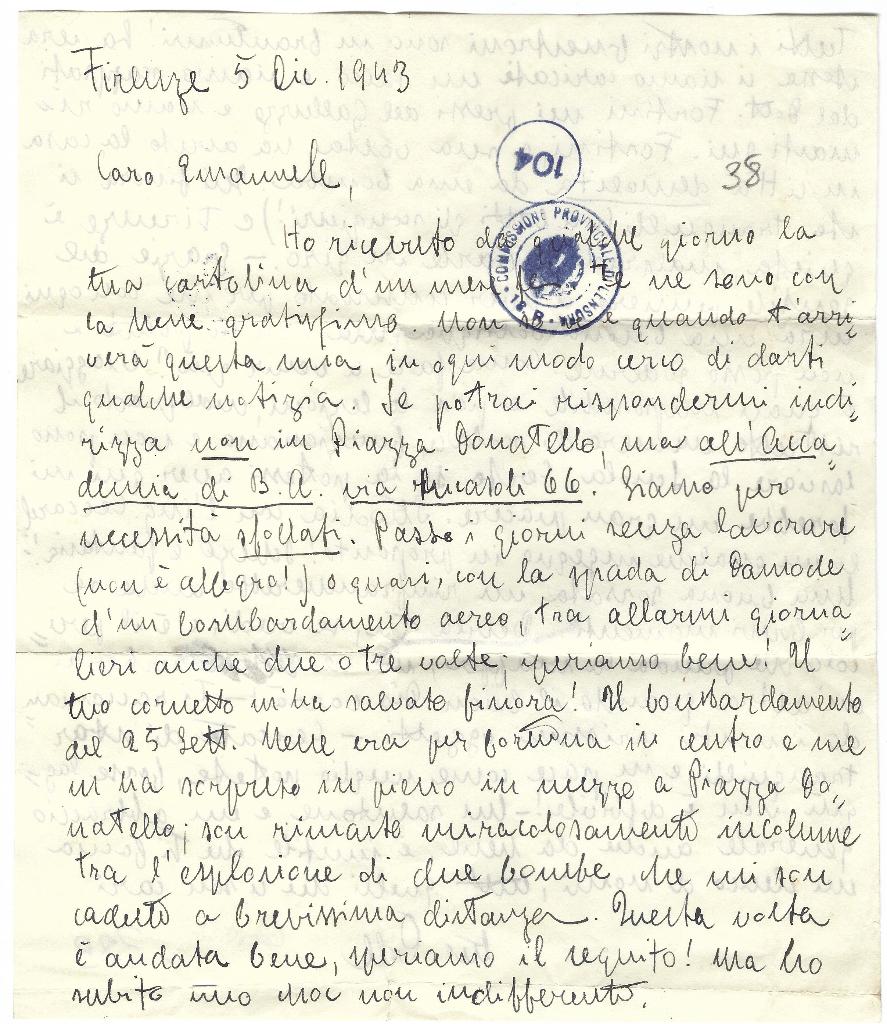 Firenze 5 Dic. 1943
104
38
Caro Emanuele,
COMMISSIONE PROVINCIALE DI CENSURA
18 R
Ho ricevuto da qualche giorno la
tua cartolina d'un mese fa e te ne sono con
la Nene gratissimo. Non so se e quando t'arri-
verà questa mia, in ogni modo cerco di darti
qualche notizia. Se potrai rispondermi indi-
rizza non in Piazza Donatello, ma all'Acca-
demia di B.A. via Ricasoli 66. Siamo per
necessità sfollati. Passo i giorni senza lavorare
(non è allegro!) o quasi, con la spada di Damocle
d'un bombardamento aereo, tra allarmi giorna-
lieri anche due o tre volte; speriamo bene! Il
tuo cornetto m'ha salvato finora! Il bombardamento
del 25 Sett. Nene era per fortuna in centro e me
m'ha sorpreso in pieno in mezzo a Piazza Do-
natello; son rimasto miracolosamente incolume
tra l'esplosione di due bombe che mi son
cadute a brevissima distanza. Questa volta
è andata bene, speriamo il seguito! Ma ho
subito uno choc non indifferente.